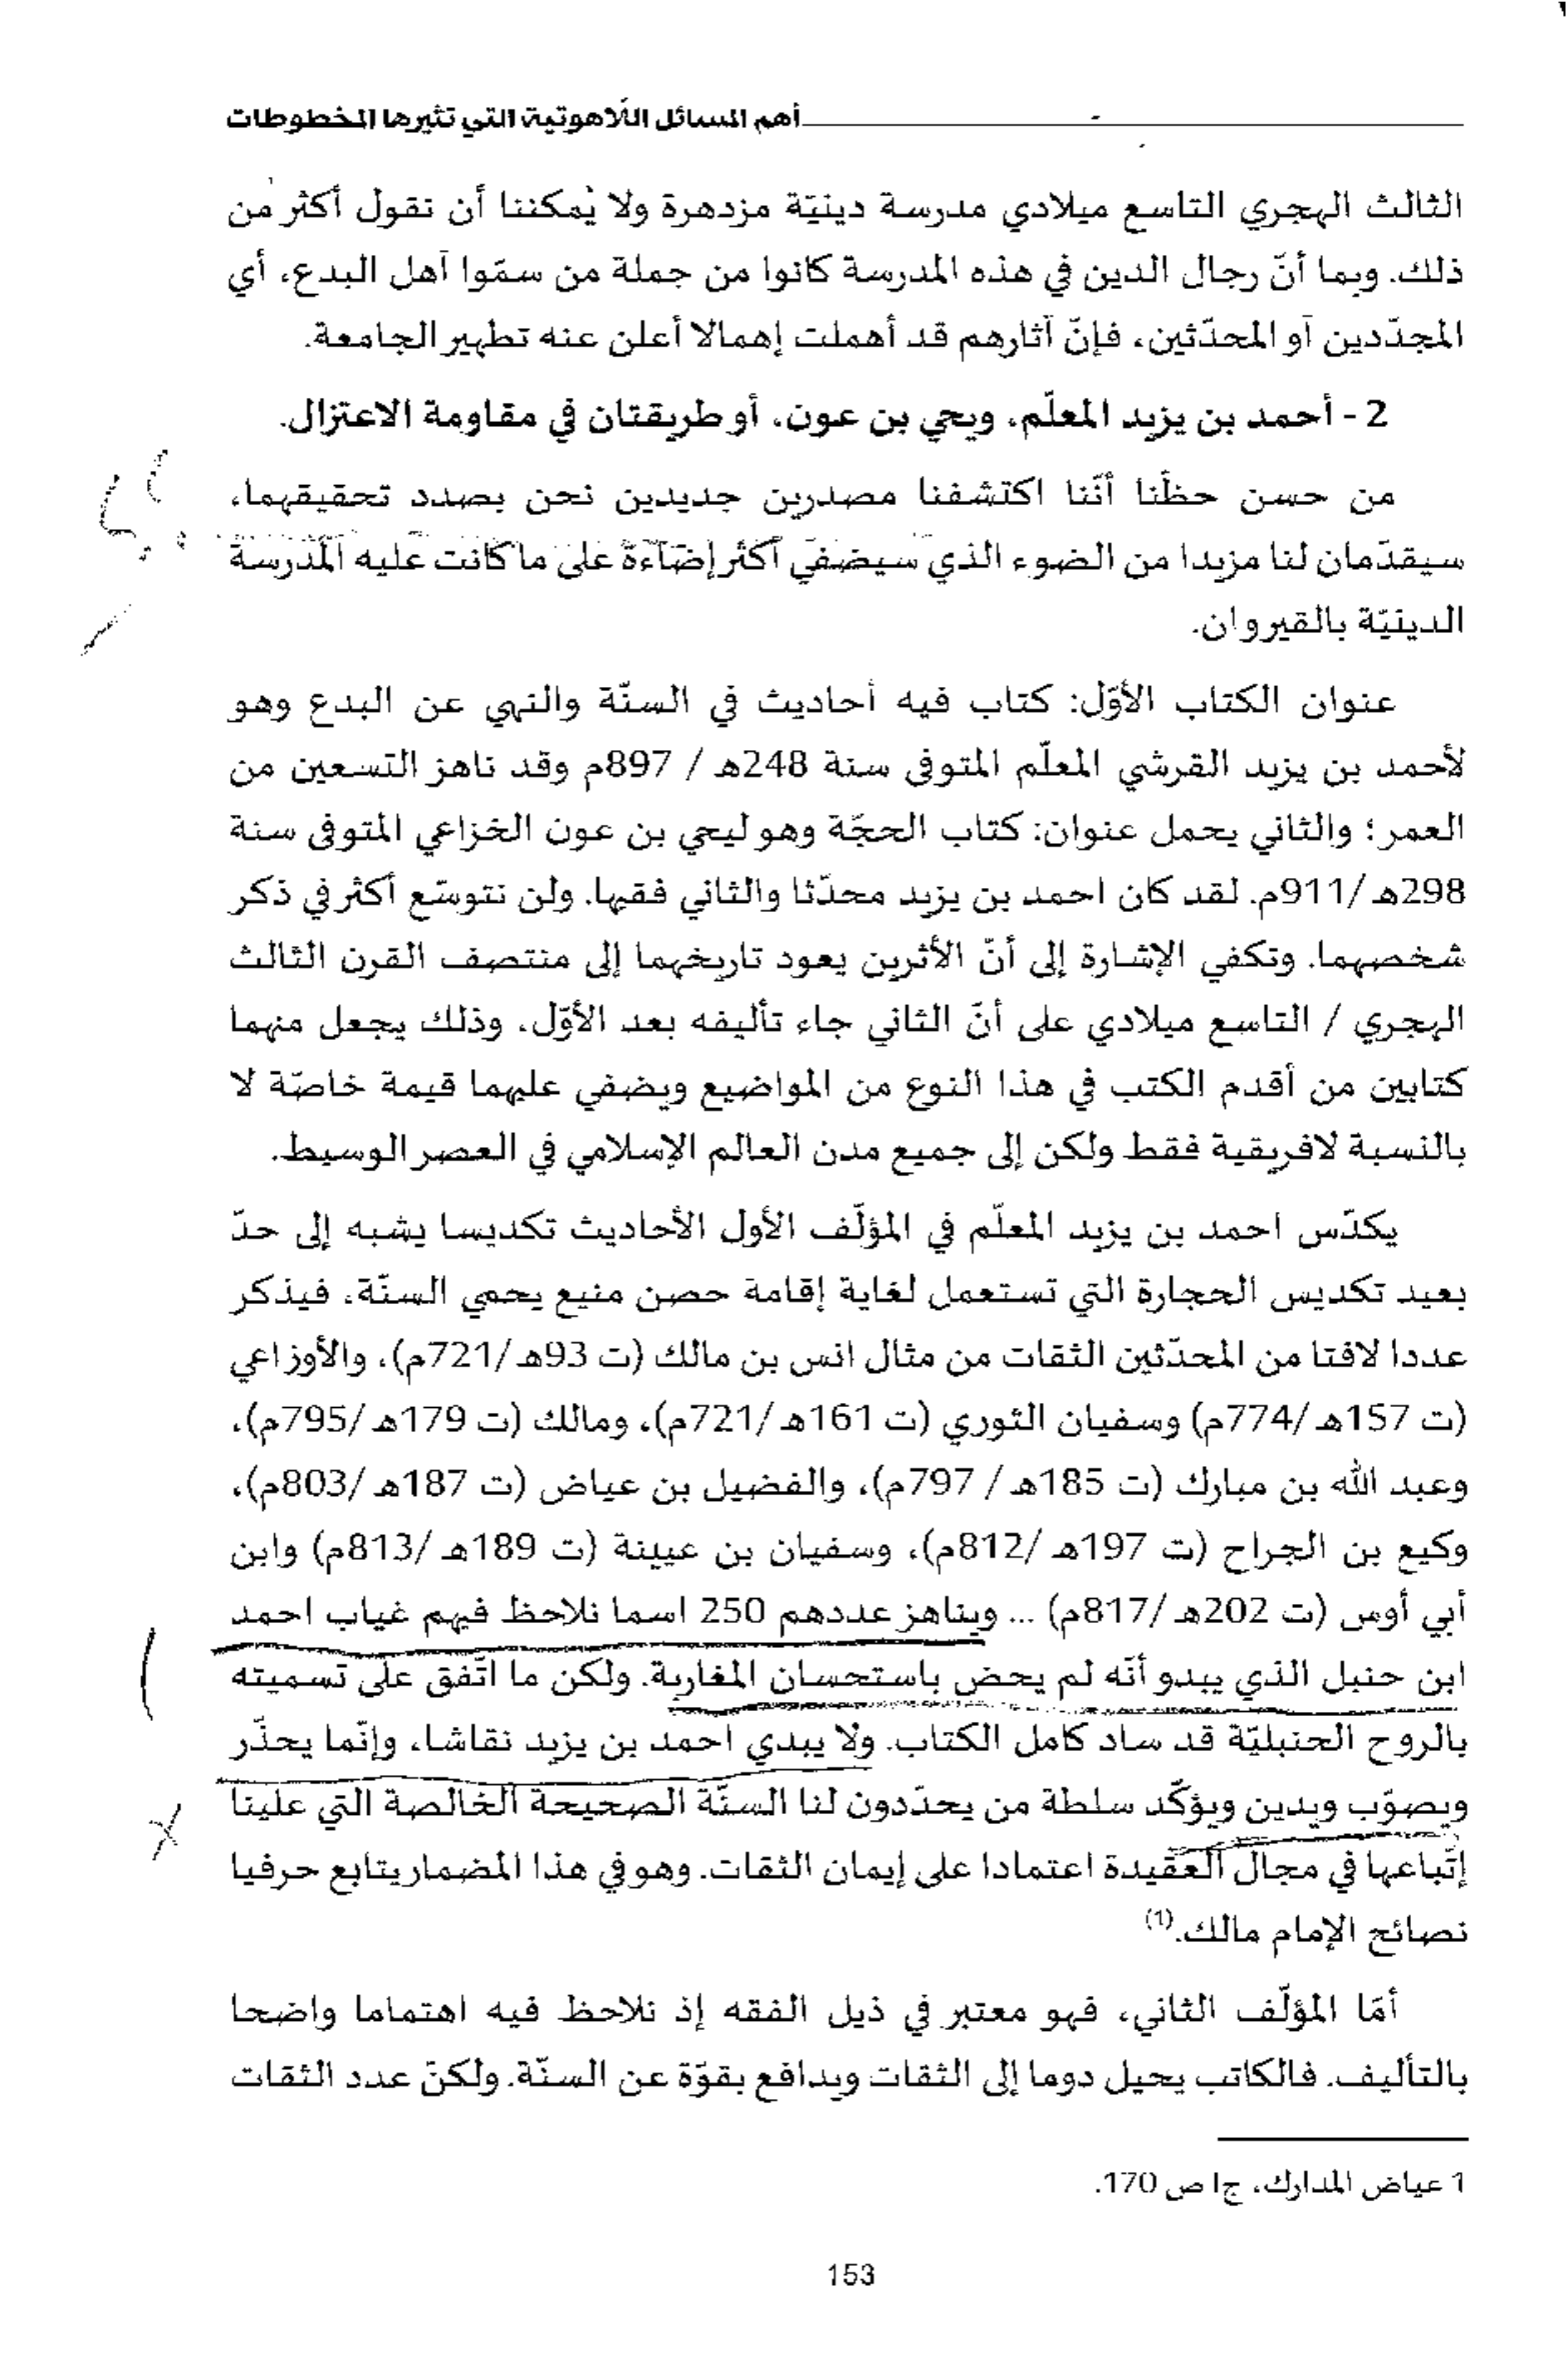 أهم المسائل اللّاهوتية التي تثيرها المخطوطات
الثالث الهجري التاسع ميلادي مدرسة دينيّة مزدهرة ولا يُمكننا أن نقول أكثر من
ذلك. وبما أنّ رجال الدين في هذه المدرسة كانوا من جملة من سمّوا آهل البدع، أي
المجدّدين آو المحدّثين، فإنّ آثارهم قد أهملت إهمالا أعلن عنه تطهير الجامعة.
2 - أحمد بن يزيد المعلّم، ويحي بن عون، أو طريقتان في مقاومة الاعتزال.
من حسن حظّنا أنّنا اكتشفنا مصدرين جديدين نحن بصدد تحقيقهما،
سيقدّمان لنا مزيدا من الضوء الذي سيضفي أكثر إضاءة على ما كانت عليه المدرسة
الدينيّة بالقيروان.
عنوان الكتاب الأوّل: كتاب فيه أحاديث في السنّة والنهي عن البدع وهو
لأحمد بن يزيد القرشي المعلّم المتوفى سنة 248هـ / 897م وقد ناهز التسعين من
العمر؛ والثاني يحمل عنوان: كتاب الحجّة وهو ليحي بن عون الخزاعي المتوفى سنة
298هـ /911م. لقد كان احمد بن يزيد محدّثا والثاني فقيها. ولن نتوسّع أكثر في ذكر
شخصيهما. وتكفي الإشارة إلى أنّ الأثرين يعود تاريخهما إلى منتصف القرن الثالث
الهجري / التاسع ميلادي على أنّ الثاني جاء تأليفه بعد الأوّل، وذلك يجعل منهما
كتابين من أقدم الكتب في هذا النوع من المواضيع ويضفي عليهما قيمة خاصّة لا
بالنسبة لافريقية فقط ولكن إلى جميع مدن العالم الإسلامي في العصر الوسيط.
يكدّس احمد بن يزيد المعلّم في المؤلّف الأول الأحاديث تكديسا يشبه إلى حدّ
بعيد تكديس الحجارة التي تستعمل لغاية إقامة حصن منيع يحمي السنّة، فيذكر
عددا لافتا من المحدّثين الثقات من مثال انس بن مالك (ت 93هـ /721م)، والأوزاعي
(ت 157هـ /774م) وسفيان الثوري (ت 161هـ /721م)، ومالك (ت 179هـ /795م)،
وعبد الله بن مبارك (ت 185هـ / 797م)، والفضيل بن عياض (ت 187هـ /803م)،
وكيع بن الجراح (ت 197هـ /812م)، وسفيان بن عيينة (ت 189هـ /813م) وابن
أبي أوس (ت 202هـ /817م) ... ويناهز عددهم 250 اسما نلاحظ فيهم غياب احمد
ابن حنبل الذي يبدو أنّه لم يحض باستحسان المغاربة. ولكن ما اتّفق على تسميته
بالروح الحنبليّة قد ساد كامل الكتاب. ولا يبدي احمد بن يزيد نقاشا، وإنّما يحذّر
ويصوّب ويدين ويؤكّد سلطة من يحدّدون لنا السنّة الصحيحة الخالصة التي علينا
إتّباعها في مجال العقيدة اعتمادا على إيمان الثقات. وهو في هذا المضمار يتابع حرفيا
نصائح الإمام مالك.(1)
أمّا المؤلّف الثاني، فهو معتبر في ذيل الفقه إذ نلاحظ فيه اهتماما واضحا
بالتأليف. فالكاتب يحيل دوما إلى الثقات ويدافع بقوّة عن السنّة. ولكنّ عدد الثقات
1 عياض المدارك، ج1 ص 170.
153